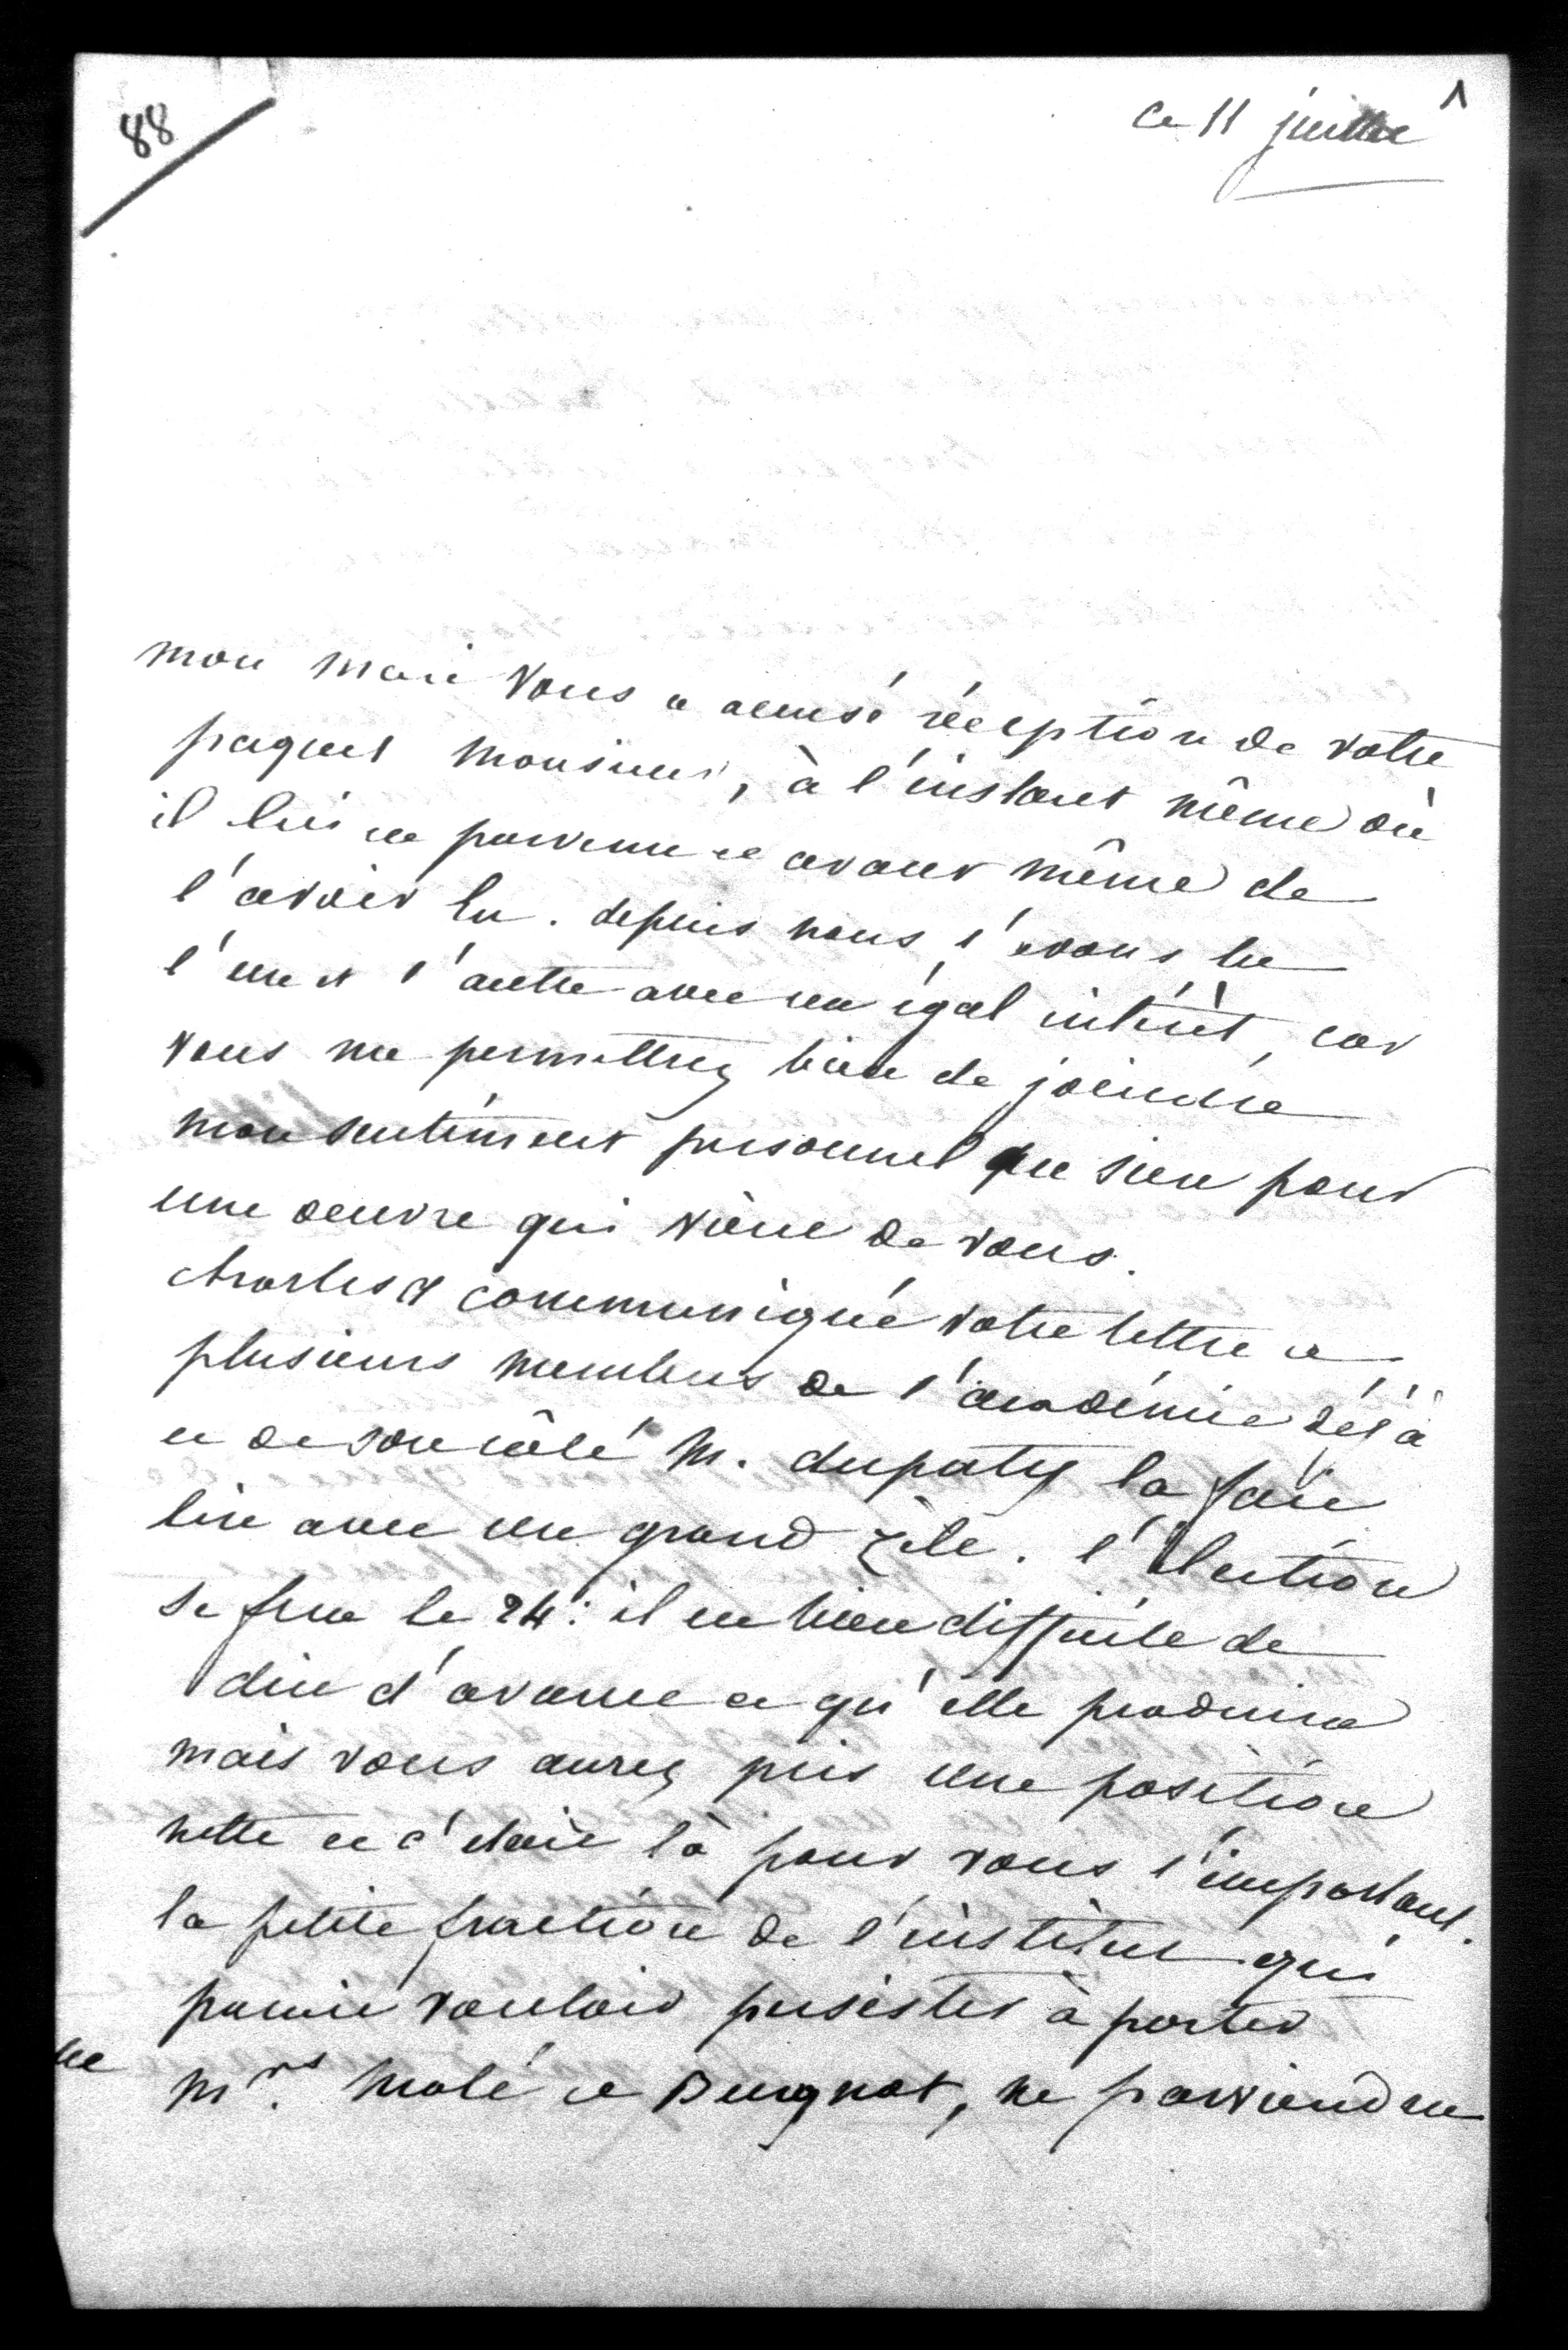 88
1
ce 11 juillet
mon mari vous a accusé réception de votre
paquet monsieur, à l'instant même où
il lui est parvenu et avant même de
l'avoir lu. depuis nous l'avons lu
l'un et l'autre avec un égal intérêt, car
vous me permettrez bien de joindre
mon sentiment personnel au sien pour
une oeuvre qui viène de vous.
charles a communiqué votre lettre a
plusieurs membres de l'académie déjà
et de son côté M. dupaty la fait
lire avec un grand zèle. l'élection
se fera le 24: il est bien difficile de
dire d'avance ce qu'elle produira
mais vous aurez pris une position
nette et c'étaie là pour vous l'important.
la petite fraction de l'institut qui
paraie vouloir persister à porter
Mrs. Molé et Beugnot, ne parviendra